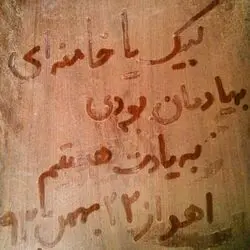 لبیک یا خامنه‌ای
بیادمان بودی
به یادت هستم
اهواز ۲۳ بهمن ۹۲